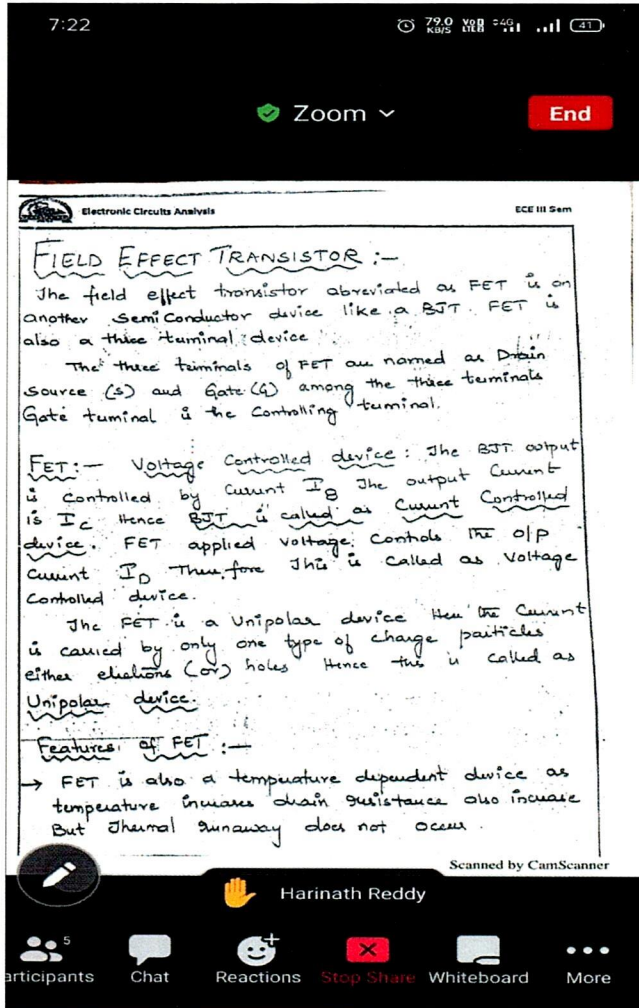 7:22
79.0 KB/S VoD LTE2 4G 41
Zoom
End
Electronic Circuits Analysis ECE III Sem
FIELD EFFECT TRANSISTOR :-
The field effect transistor abreviated as FET is an
another Semi Conductor device like a BJT. FET is
also a three terminal device
The three terminals of FET are named as Drain
Source (S) and Gate (G) among the three terminals
Gate terminal is the Controlling terminal.
FET:- Voltage Controlled device: The BJT output
is controlled by Current IB The output Current
is IC Hence BJT is called as Current Controlled
device. FET applied voltage Controls the o/p
Current ID Therefore This is called as Voltage
Controlled device.
The FET is a Unipolar device Here the Current
is carried by only one type of charge particles
either electrons (or) holes Hence this is called as
Unipolar device.
Features of FET :-
→ FET is also a temperature dependent device as
temperature increases drain resistance also increase
But Thermal runaway does not occur.
Scanned by CamScanner
Harinath Reddy
5
articipants Chat Reactions Stop Share Whiteboard More